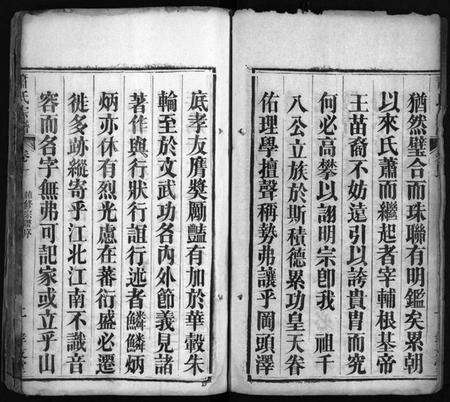 猶然璧合而珠聯有明鑑矣累朝
以來氏蕭而繼起者宰輔根基帝
王苗裔不妨遠引以誇貴胄而究
何必高攀以詡明宗卽我 祖千
八公立族於斯積德累功皇天眷
佑理學擅聲稱勢弗讓乎岡頭澤
底孝友膺獎勵豔有加於華轂朱
輪至於文武功名內外節義見諸
著作與行狀行誼行述者鱗鱗炳
炳亦休有烈光慮在蕃衍盛必遷
徙多跡縱寄乎江北江南不識音
容而名字無弗可記家或立乎山